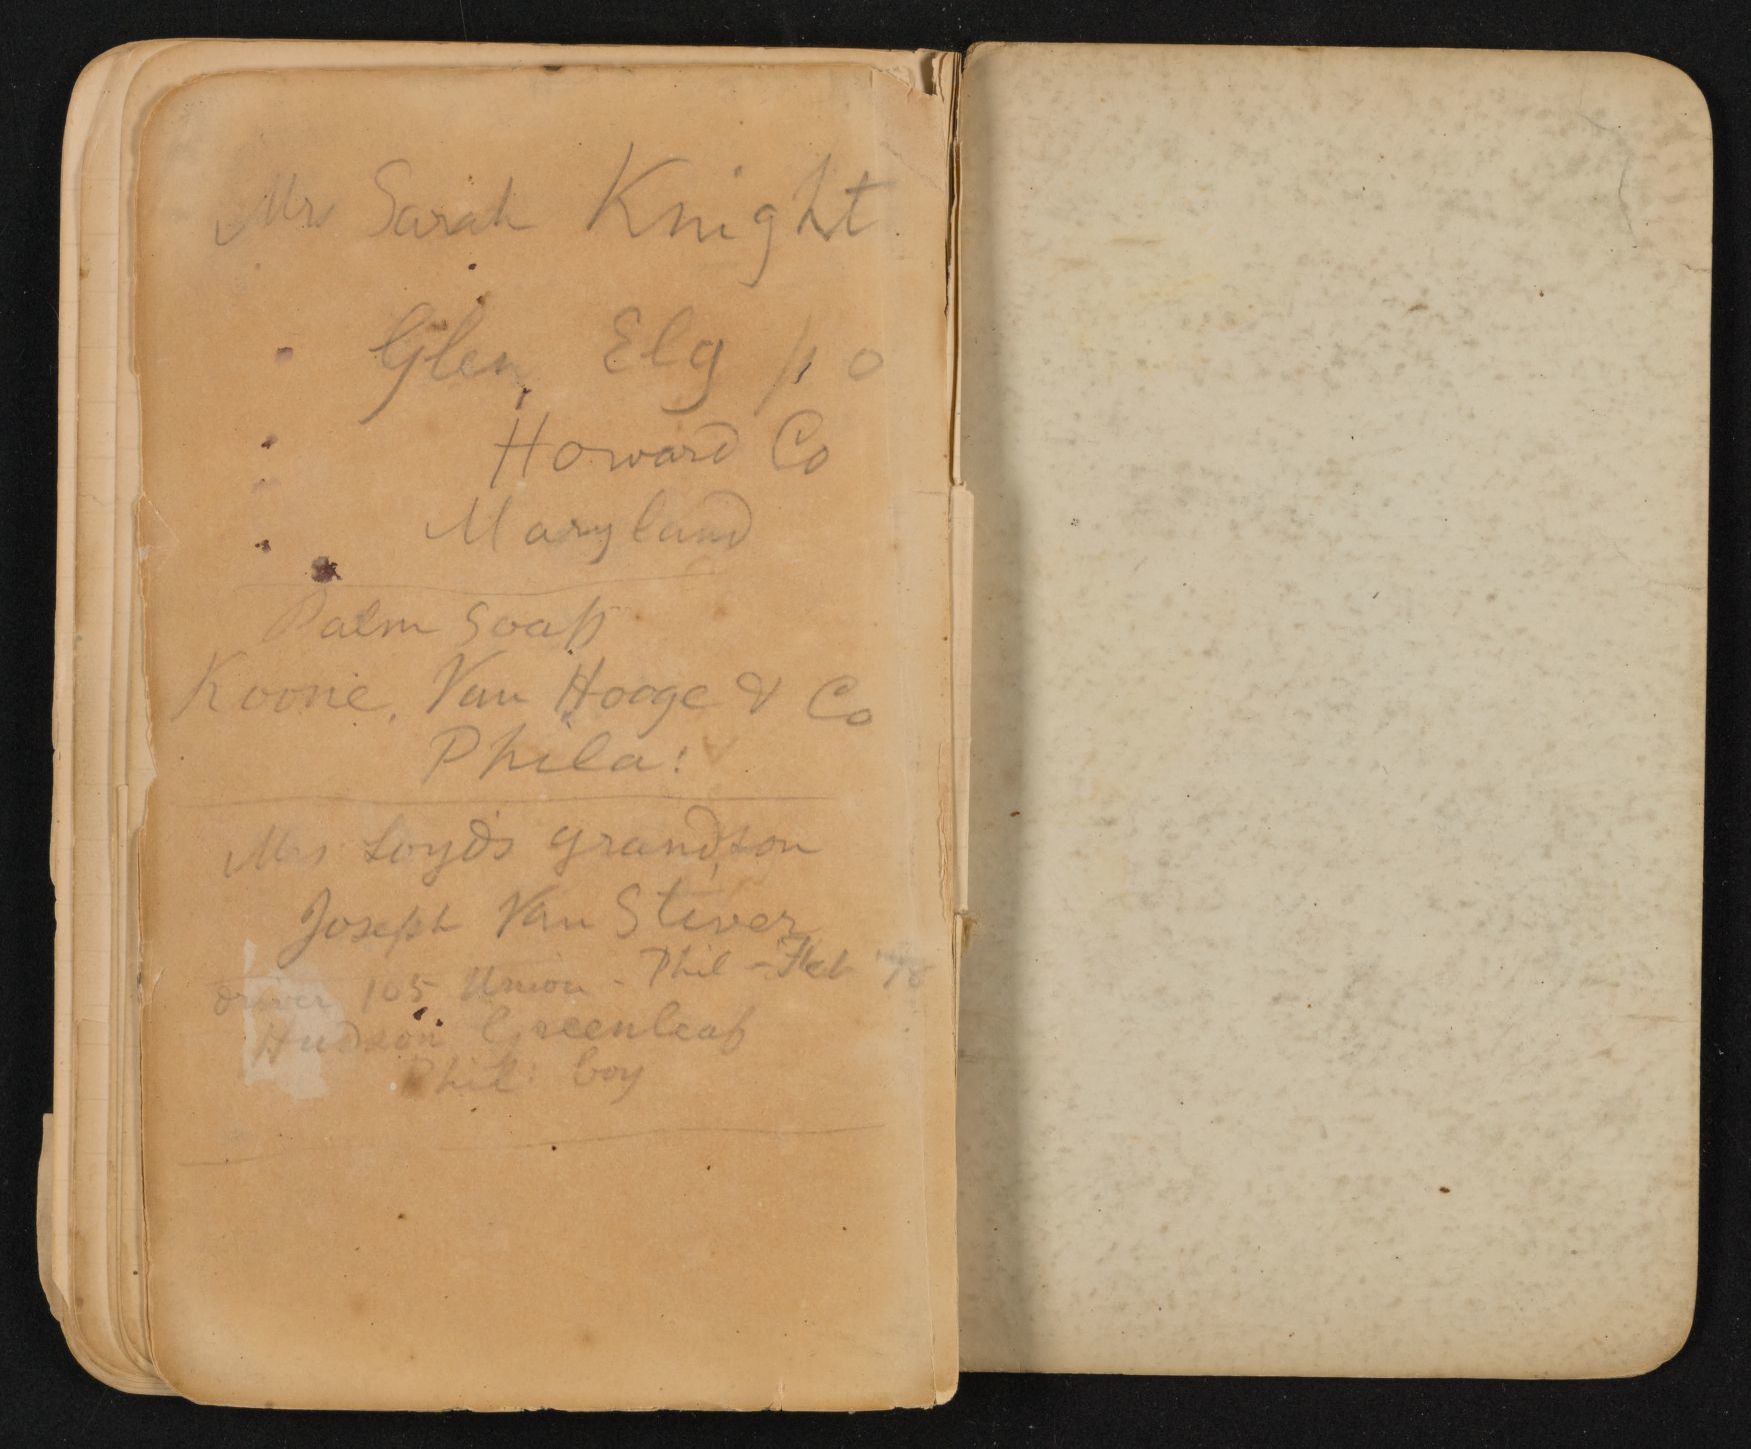 Mrs Sarah Knight
Glen Elg p o
Howard Co
Maryland
Palm Soap
Koone, Van Hooge & Co
Phila:
Mrs Loyds grandson
Joseph Van Stiver
driver 105 Union - Phil - Feb '78
Hudson Greenleaf
Phil: boy